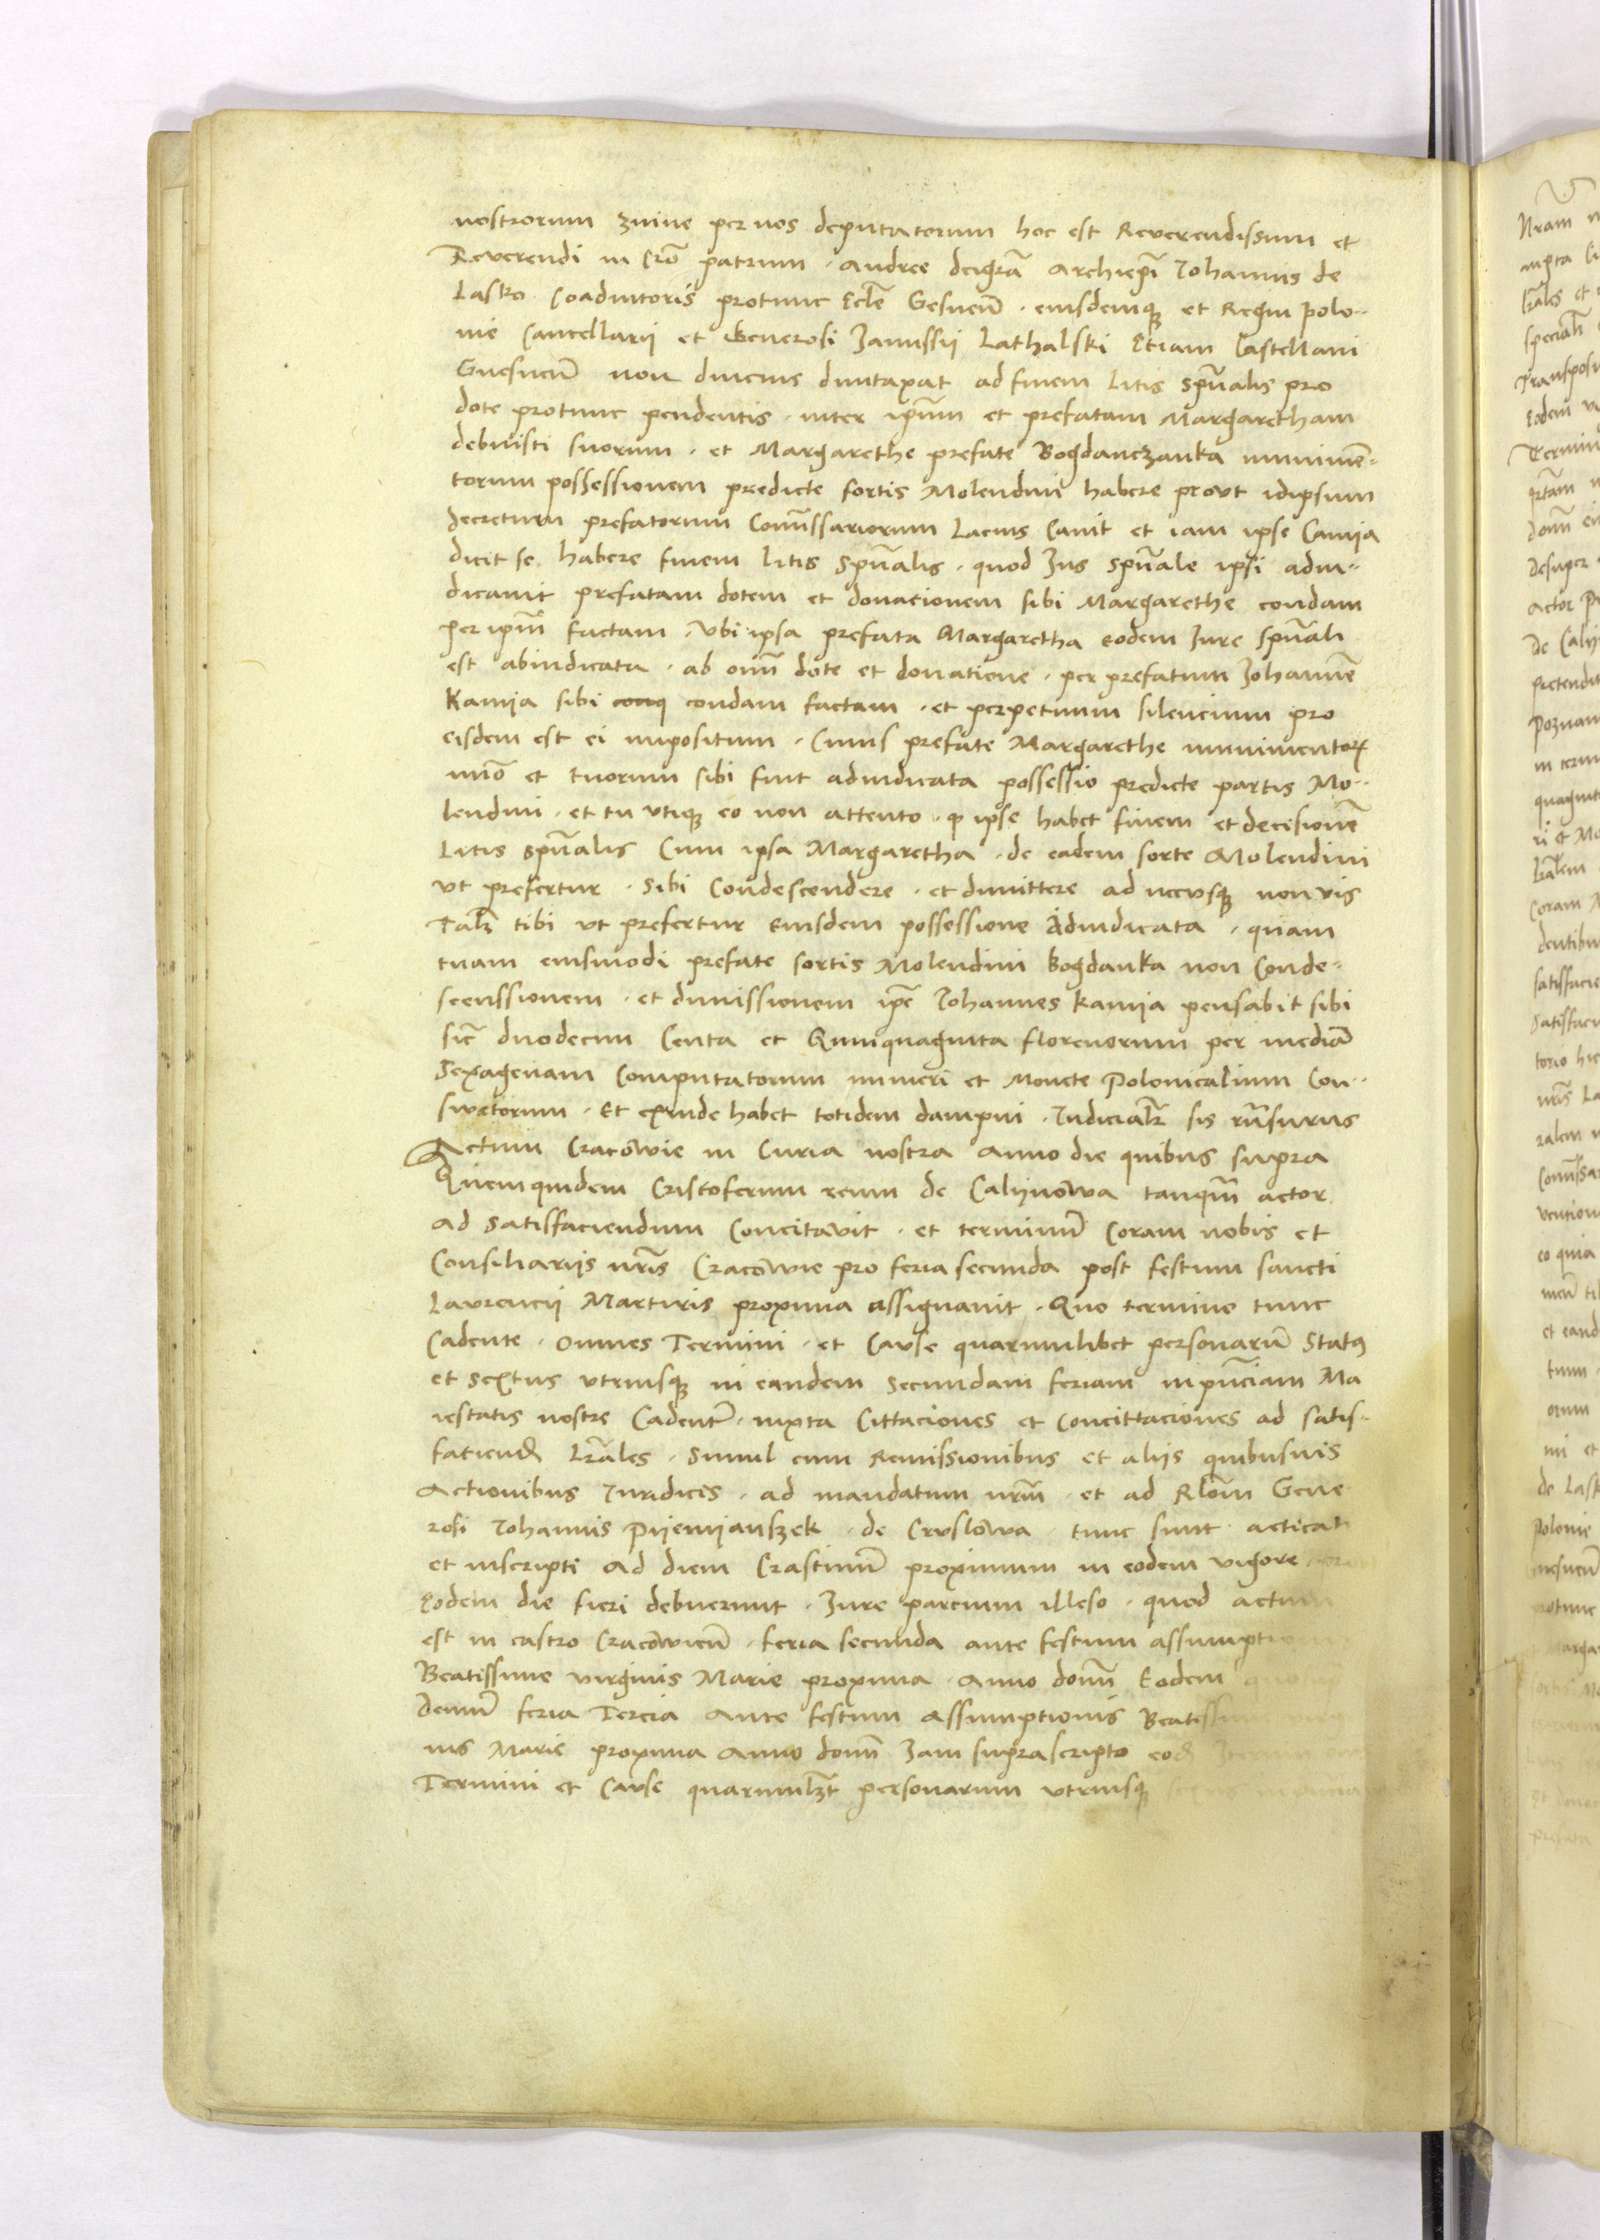 nostrorum znine per nos deputatorum hoc est Reverendissimi et
Reverendi in Cro patrum · Andree deigra Archiepi Johannis de
Lasko Coadiutoris protunc Eccle Gesnen · eiusdemque et Regni polo-
nie Cancellarii et Generosi Janussii Lathalski Etiam Castellani
Gnesnen non diucius duntaxat ad finem litis spualis pro
dote protunc pendentis · inter ipsum et prefatam Margaretham
debuisti suorum · et Margarethe prefate Bogdanczanka munimen-
torum possessionem predicte sortis Molendini habere prout idipsum
decretum prefatorum Comissariorum Lacius Canit et iam ipse Camija
dicit se habere finem litis spualis · quod Jus spuale ipsi adiu-
dicauit prefatam dotem et donacionem sibi Margarethe condam
per ipm factam · Vbi ipsa prefata Margaretha eodem Jure spuali
est abiudicata · ab omi dote et donatione · per prefatum Johanne
Kamija sibi condam factam · et perpetuum silencium pro
eisdem est ei impositum · Cuius prefate Margarethe munimentor
imo et tuorum sibi fuit adiudicata possessio predicte partis Mo-
lendini · et tu utique eo non attento · q ipse habet finem et decisione
Litis spualis Cum ipsa Margaretha · de eadem sorte Molendini
ut prefertur · sibi Condescendere · et dimittere ad necusque non vis
Talr tibi ut prefertur Eiusdem possessione Adiudicata · quam
tuam eiusmodi prefate sortis Molendini bogdanka non Conde-
scenssionem · et dimissionem ipe Johannes kamija pensabit sibi
sic duodecim Centa et Quinquaginta florenorum per media
Sexagenam Computatorum numeri et Monete Polonicalium Con-
suetorum · Et exinde habet totidem dampni · Judicialr sis rnsurus
Actum Cracowie in Curia nostra anno die quibus supra
Quemquidem Cristoferum reum de Calijnowa tanqm actor
ad satisfaciendum Concitavit · et terminum Coram nobis et
Consiliariis nris Cracowie pro feria secunda post festum sancti
Laurencii Marturis proxima assignauit · Quo termino tunc
Cadente · omnes Termini · et Cause quarumlibet personaru Status
et sextus utriusque in eandem secundam feriam in pnciam Ma
iestatis nostre Cadentes · iuxta Cittaciones et Concittaciones ad satis-
fatiend lrales · simul cum Remissionibus et aliis quibusuis
Actionibus Juridicis · ad mandatum nrm · et ad Rlom Gene
rosi Johannis Prijemijanszek · de Cruslowa · tunc sunt acticati
et inscripti ad diem Crastinum proximum in eodem vigore
Eodem die fieri debuerunt · Jure parcium illeso · quod actum
est in castro Cracowien · feria secunda ante festum assumptio
Beatissime virginis Marie proxima · Anno domi Eodem
Demu feria Tercia Ante festum Assumptionis Beatissi
nis Marie proxima Anno domi Jam suprascripto eod
Termini et Cause quarumlzt personarum utriusque